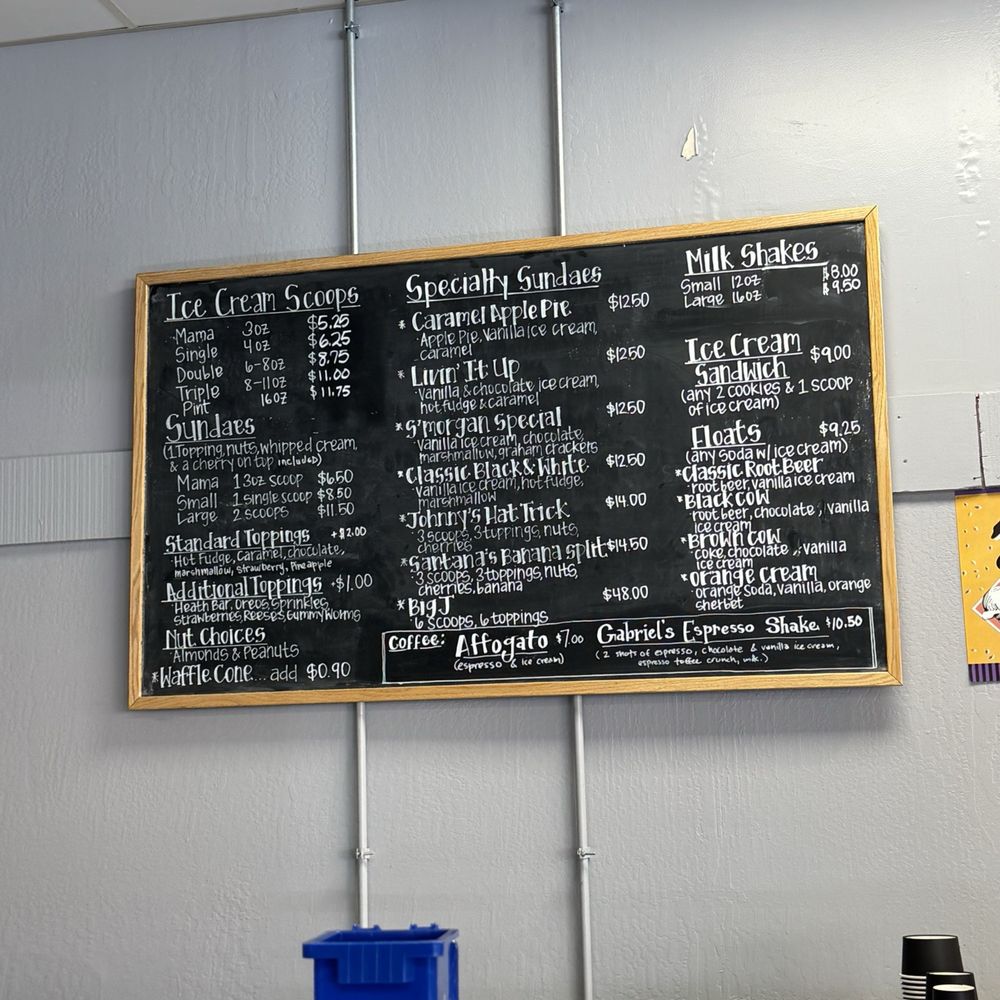 Ice Cream Scoops
Mama 3oz $5.25
Single 4oz $6.25
Double 6-8oz $8.75
Triple 8-11oz $11.00
Pint 16oz $11.75
Sundaes
(1 Topping, nuts, whipped cream,
& a cherry on top included)
Mama 1 3oz scoop $6.50
Small 1 single scoop $8.50
Large 2 scoops $11.50
Standard Toppings +$2.00
Hot Fudge, Caramel, chocolate,
marshmallow, strawberry, Pineapple
Additional Toppings +$1.00
Heath Bar, Oreos, Sprinkles,
strawberries, Reeses, Gummy Worms
Nut Choices
Almonds & Peanuts
*Waffle Cone... add $0.90
Specialty Sundaes
* Caramel Apple Pie $12.50
Apple Pie, Vanilla ice cream,
caramel
* Livin' It Up $12.50
Vanilla & chocolate ice cream,
hot fudge & caramel
* S'morgan Special $12.50
Vanilla ice cream, chocolate,
marshmallow, graham crackers
*Classic Black & White $12.50
Vanilla ice cream, hot fudge,
marshmallow
*Johnny's Hat Trick $14.00
3 scoops, 3 toppings, nuts,
cherries
*Santana's Banana Split $14.50
3 scoops, 3 toppings, nuts,
cherries, banana
*Big J $48.00
6 scoops, 6 toppings
Milk Shakes
Small 12oz $8.00
Large 16oz $9.50
Ice Cream
Sandwich $9.00
(any 2 cookies & 1 scoop
of ice cream)
Floats $9.25
(any soda w/ ice cream)
*Classic Root Beer
root beer, vanilla ice cream
*Black Cow
root beer, chocolate, vanilla
ice cream
*Brown Cow
coke, chocolate, vanilla
ice cream
*Orange Cream
orange soda, vanilla, orange
sherbet
Coffee: Affogato $7.00 Gabriel's Espresso Shake $10.50
(espresso & ice cream) (2 shots of espresso, chocolate & vanilla ice cream,
espresso toffee crunch, milk.)